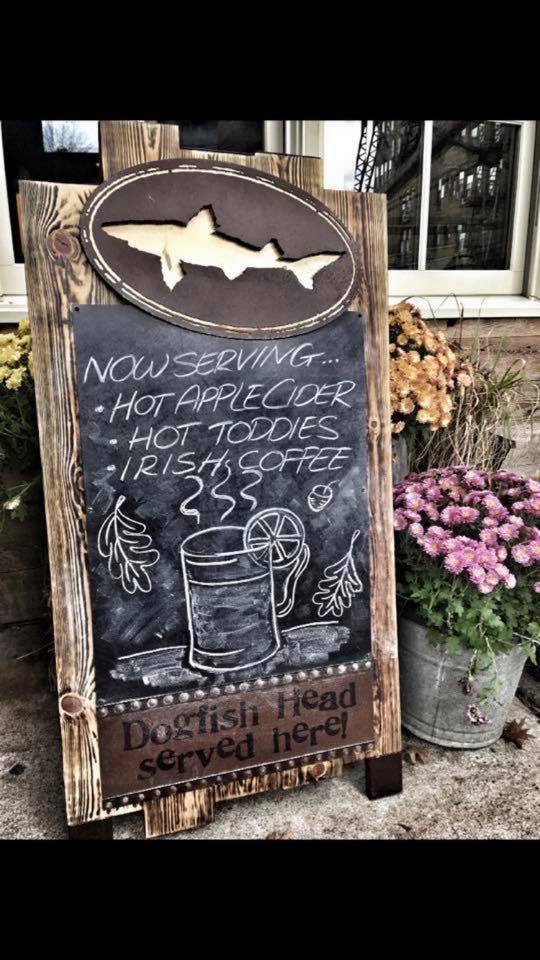 NOW SERVING...
• HOT APPLE CIDER
• HOT TODDIES
• IRISH COFFEE
Dogfish Head
served here!